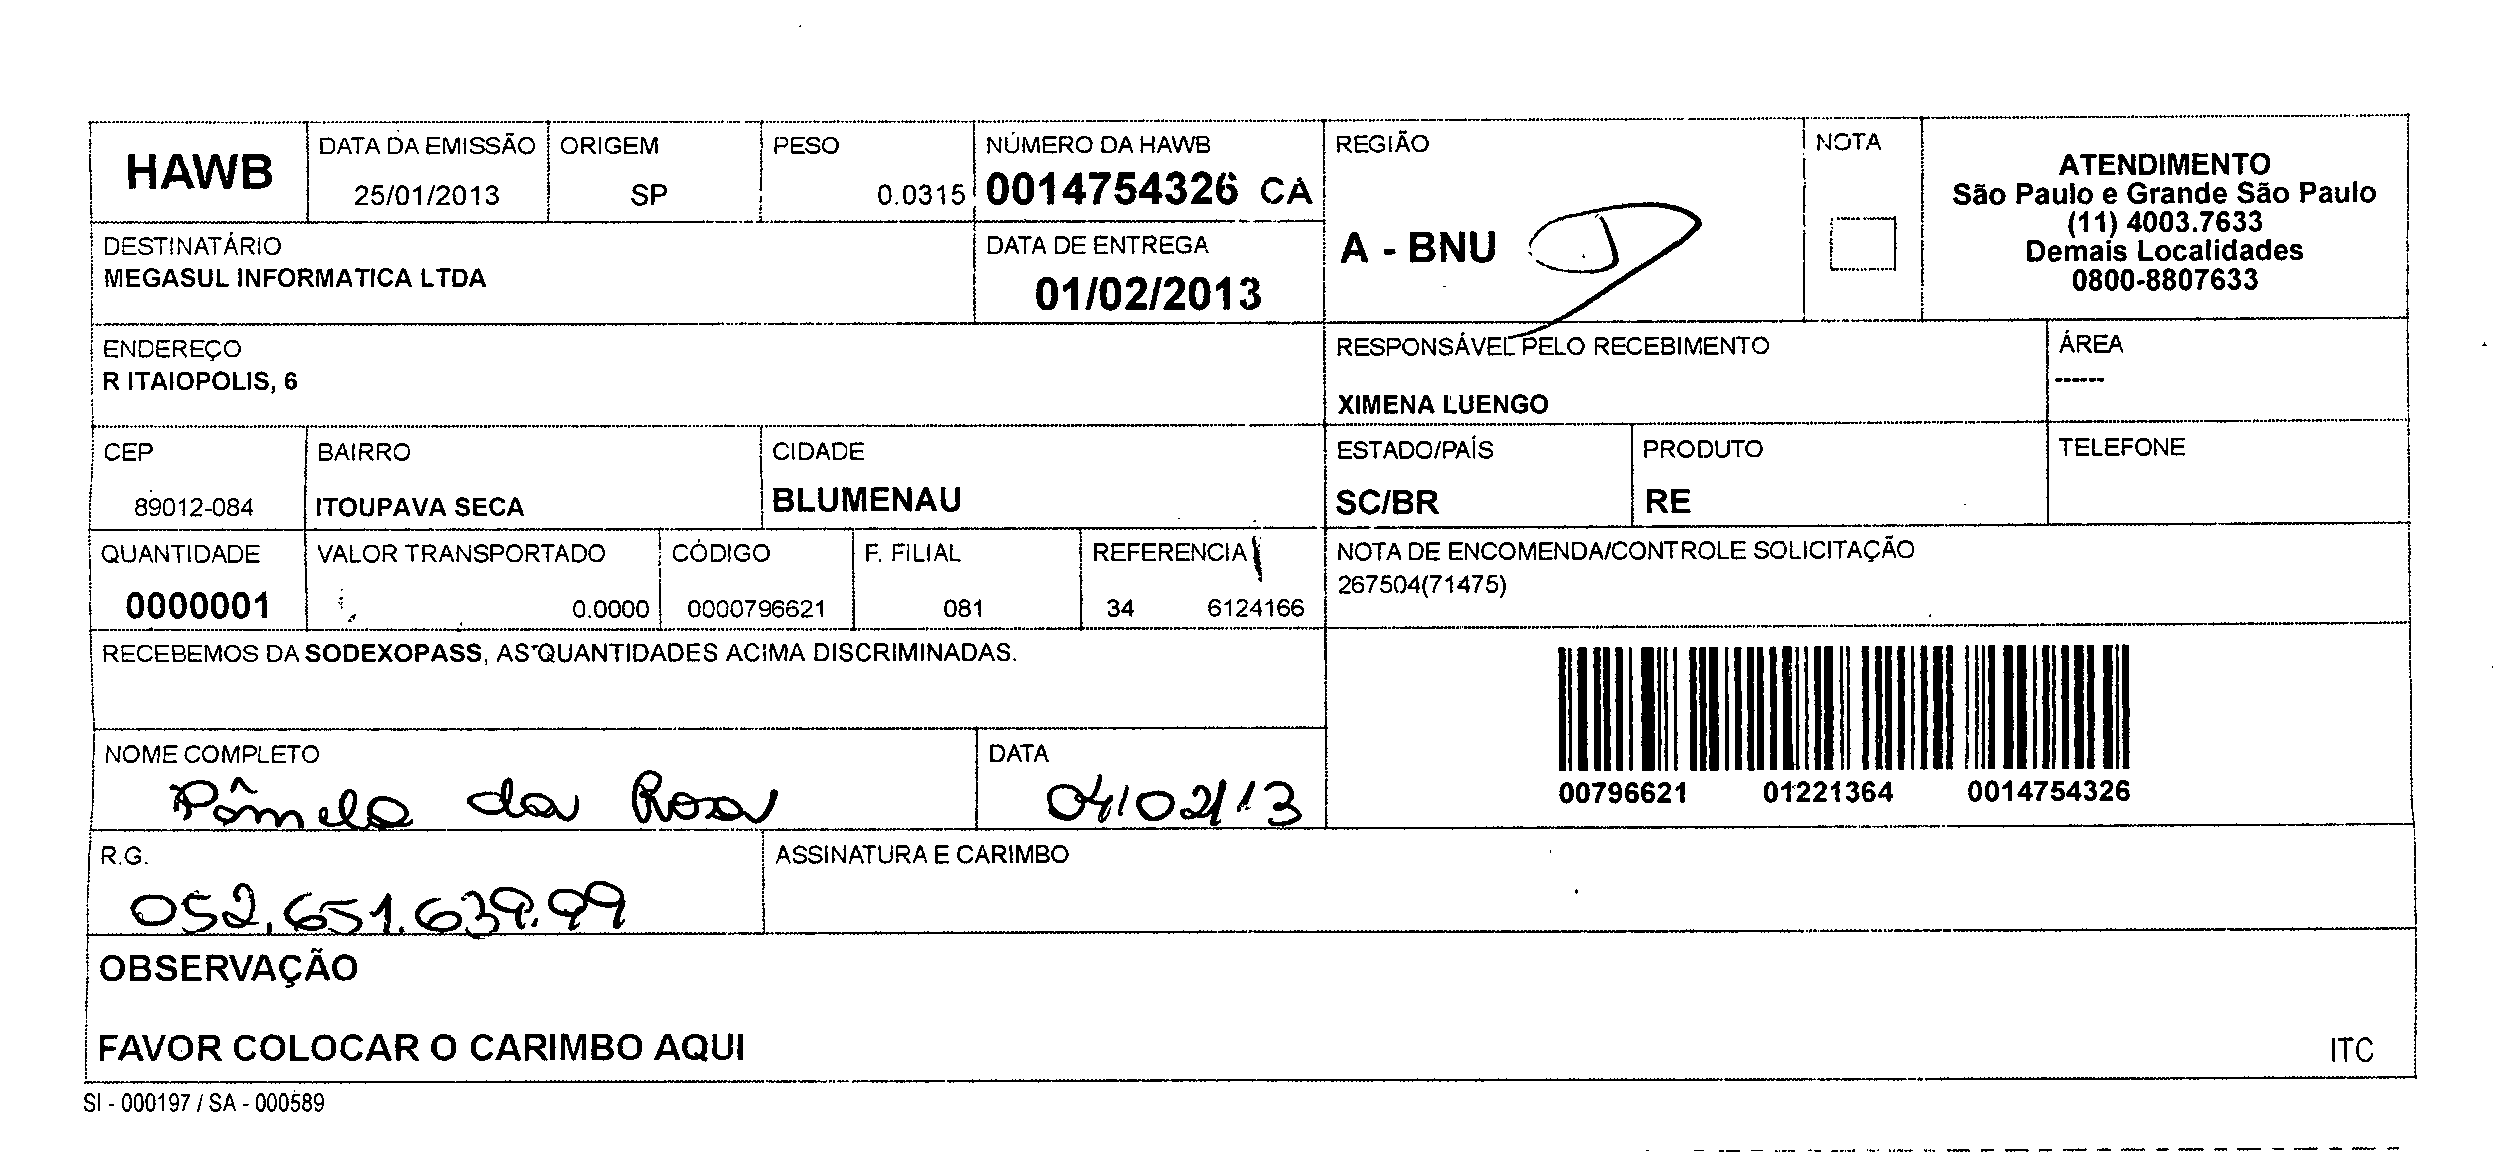 HAWB
DATA DA EMISSÃO
25/01/2013
ORIGEM
SP
PESO
0.0315
NÚMERO DA HAWB
0014754326 CA
REGIÃO
A - BNU
NOTA
ATENDIMENTO
São Paulo e Grande São Paulo
(11) 4003.7633
Demais Localidades
0800-8807633
DESTINATÁRIO
MEGASUL INFORMATICA LTDA
DATA DE ENTREGA
01/02/2013
ENDEREÇO
R ITAIOPOLIS, 6
RESPONSÁVEL PELO RECEBIMENTO
XIMENA LUENGO
ÁREA
------
CEP
89012-084
BAIRRO
ITOUPAVA SECA
CIDADE
BLUMENAU
ESTADO/PAÍS
SC/BR
PRODUTO
RE
TELEFONE
QUANTIDADE
0000001
VALOR TRANSPORTADO
0.0000
CÓDIGO
0000796621
F. FILIAL
081
REFERENCIA
34 6124166
NOTA DE ENCOMENDA/CONTROLE SOLICITAÇÃO
267504(71475)
RECEBEMOS DA SODEXOPASS, AS QUANTIDADES ACIMA DISCRIMINADAS.
00796621 01221364 0014754326
NOME COMPLETO
Pâmela da Rosa
DATA
04/02/13
R.G.
052.651.639.99
ASSINATURA E CARIMBO
OBSERVAÇÃO
FAVOR COLOCAR O CARIMBO AQUI
ITC
SI - 000197 / SA - 000589